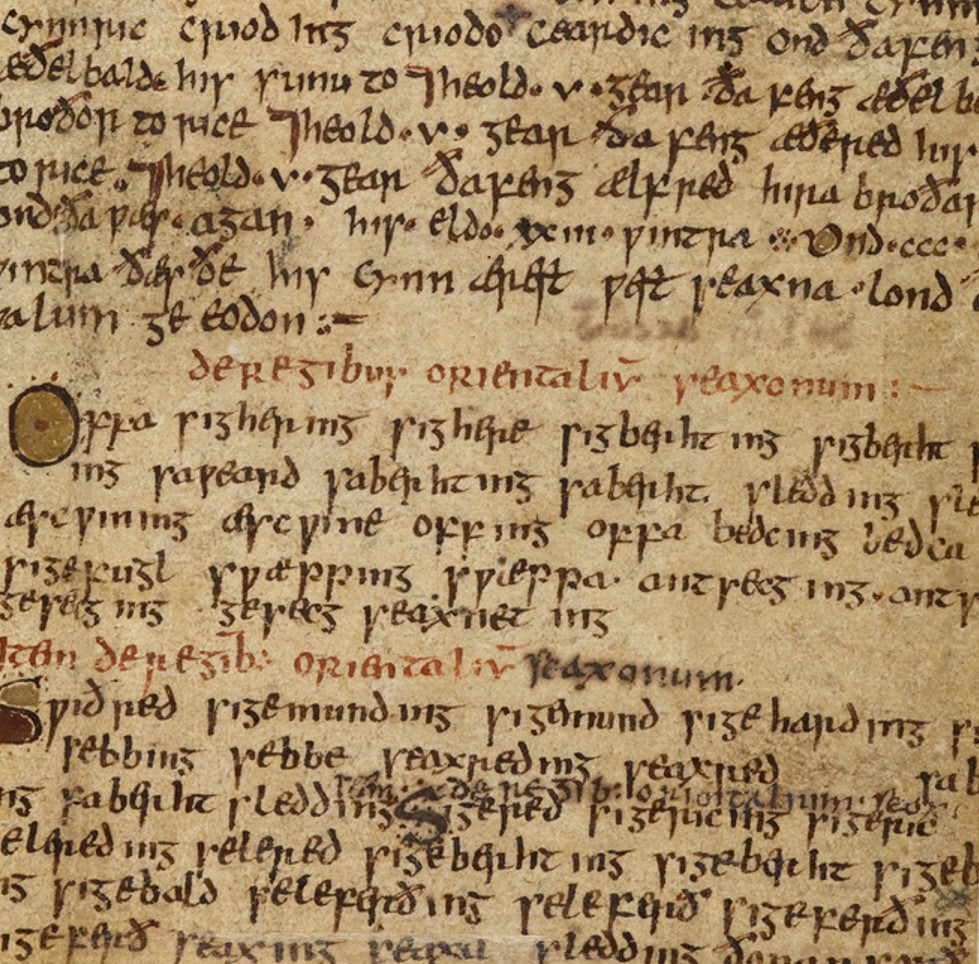 cynric criod ing criodo ceardic ing ond ða feng
æðelbald his sunu to ⁊ heold · v · gear · ða feng æðelb
broðor to rice ⁊ heold · v · gear ða feng æðered his
to rice ⁊ heold · v · gear ða feng ælfred hira broðar
ond · ða wæs · agan · his · eldo · xxiii · wintra ⁘ Ond · ccc ·
wintra ðæs ðe his cynn ærest west seaxna · lond
walum ge eodon :~
de regibus orientaliū seaxonum : ~
Offa sighering sighere sigberht ing sigberht
ing saweard saberhting saberht sledding sle
æscwining æscwine offing offa bedcing bedca
sigefugl swæpping swæppa · antsecg ing · ants
gesecg ing gesecg seaxnet ing
Item de regib: orientaliū seaxonum ·
Swiðred sigemunding sigemund sigeharding s
sebbing sebbe seaxreding seaxred sab
ing saberht sledding
Item de regib: orientalium · seax
Sigered sigericing sigeric
selered ing selered sigeberht ing sigeberht sigeb
ing sigebald seleferðing seleferð sigeferðing
sigeferð seaxing seaxa sledding